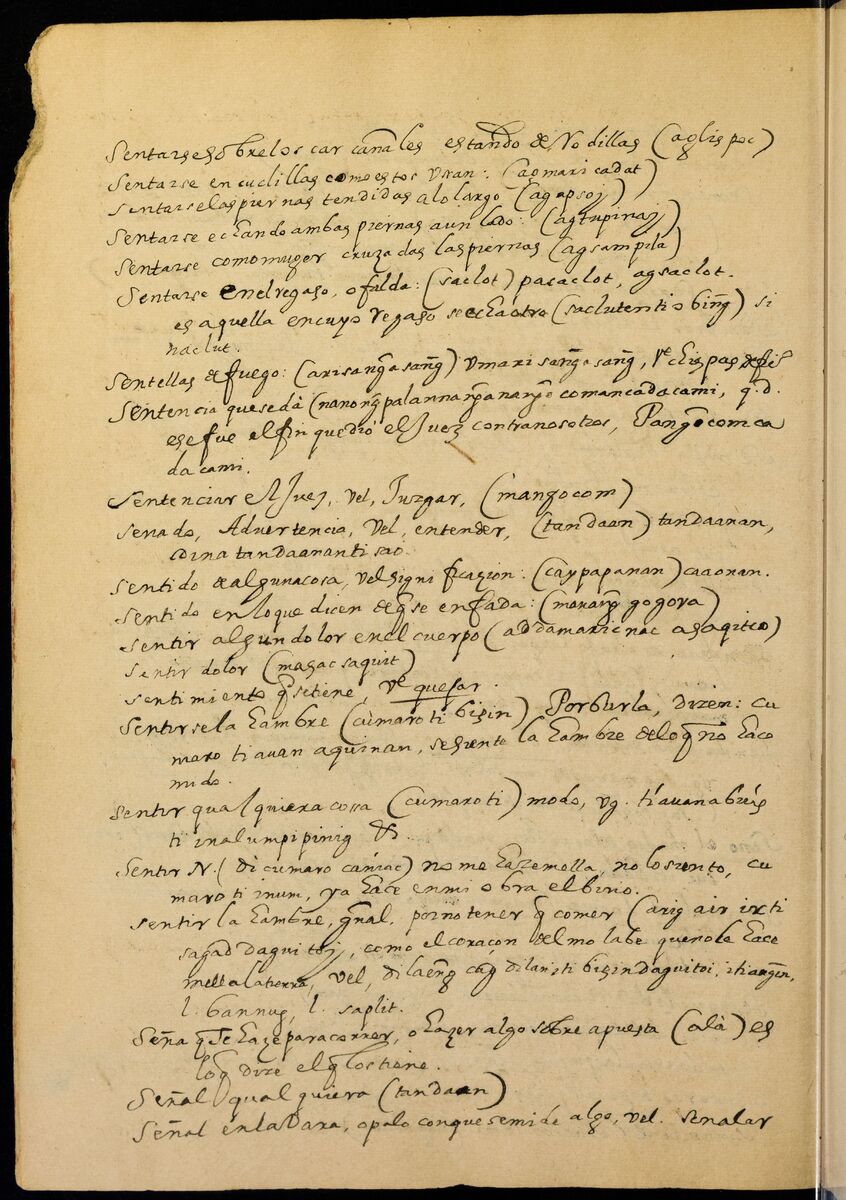 Sentarse sobre los carcañales estando de Rodillas (aglispoc)
Sentarse en cuclillas como estos usan: (agmaricadat)
Sentarse las piernas tendidas a lo largo (agapsoj)
Sentarse echando ambas piernas a un lado: (agtupinaj)
Sentarse como muger cruzadas las piernas (agsampila)
Sentarse en el regaso, o falda: (saclot) pasaclot, agsaclot.
es aquella en cuyo regaso se echa otro (saclutenti obing) si
naclut.
Sentellas de fuego: (arisangasang) umarisangasang, ve chispas
Sentencia que se dá (nanong palannanganango comancadacami, q.d.
ese fue el fin que dió el Juez contra nosotros, Pangocomca
dacami.
Sentenciar el Juez, vel, Juzgar, (mangocom)
Senado, Advertencia, vel, entender, (tandaan) tandaanan,
dina tandaananti sao.
Sentido de alguna cosa, vel significazion: (caypapanan) caaonan.
Sentido en lo que dicen de q̃ se enfada: gogora)
Sentir algun dolor en el cuerpo (addamaricnac asaquitco)
Sentir dolor (masacsaquit)
Sentimiento q̃ se tiene, ve quexar.
Sentirse la hambre (cumaroti bisin) Por burla, dizen: cu
maro ti auan aquinan, se siente la hambre de lo q̃ no ha co
mido.
Sentir qualquiera cossa (cumaroti) modo, vg. ti auan abréis
ti inalumpipinig &.
Sentir N. (di cumaro caniac) no me haze mella, no lo siento, cu
maro ti inum, ya hace en mi obra el bino.
Sentir la hambre, gñal. por no tener q̃ comer (arig air ixti
sagad daguitoj, como el coraçon del molabe que no le hace
mella la tierra, vel, dilaeng cog dilaristi bisin daguitoi,
l. bannug, l. saplit.
Seña q̃ se haze para correr, o hazer algo sobre apuesta (alà) es
loq̃ dize el q̃ lo stiene.
Señal qualquiera (tandaan)
Señal en la Vara, o palo con que se mide algo, vel. senalar